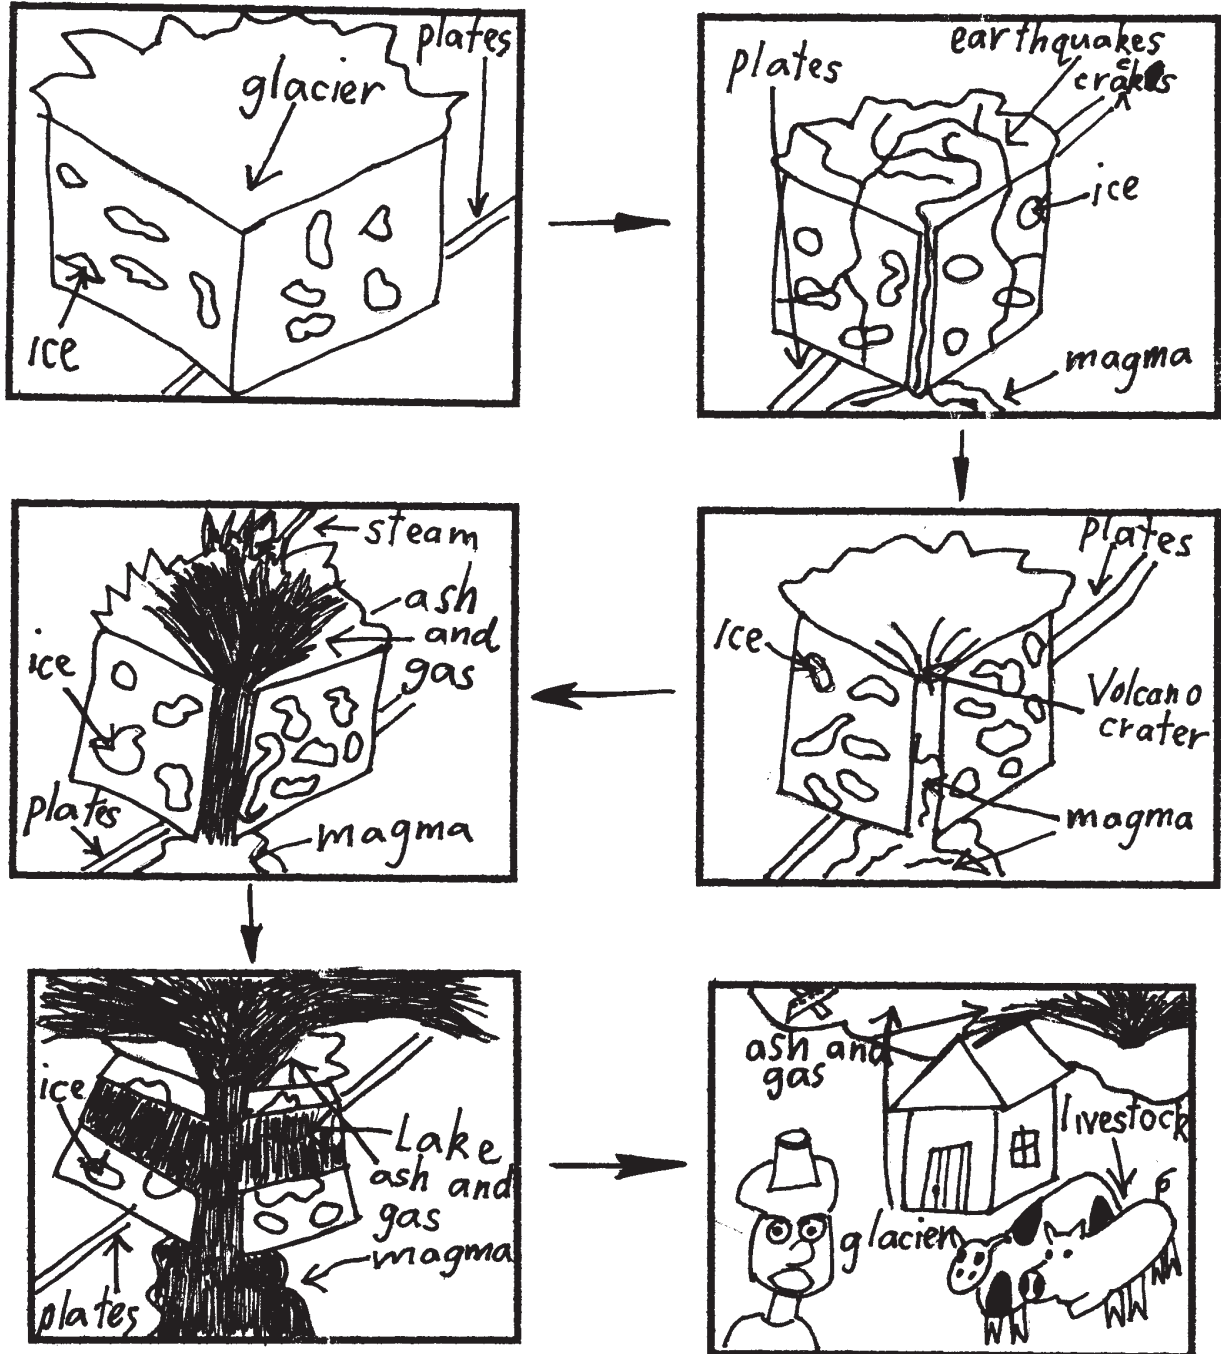 plates
glacier
ice
earthquakes
plates
ice
magma
plates
ice
Volcano
crater
magma
steam
ash
and
gas
ice
plates
magma
ice
Lake
ash and
gas
magma
plates
ash and
gas
livestock
glacier